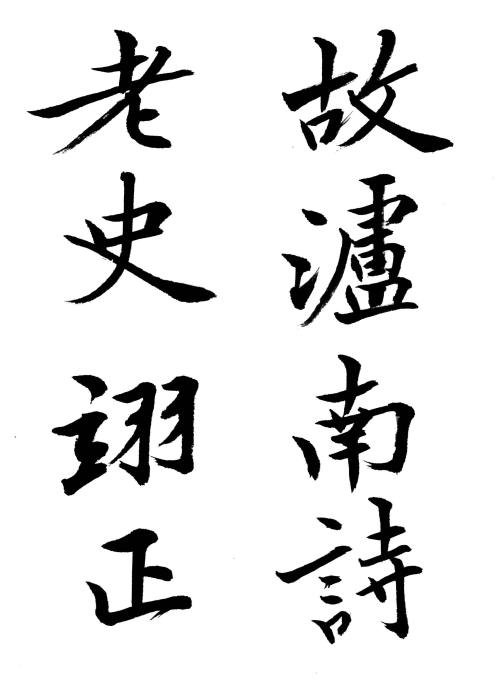 故瀘南詩
老史翊正